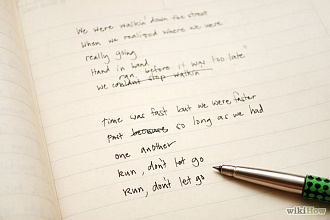 We were walkin' down the street
When we realized where we were
really going
Hand in hand
ran before it was too late"
We couldnt stop walkin
time was fast but we were faster
Past because so long as we had
one another
Run, don't let go
Run, don't let go
wikiHow